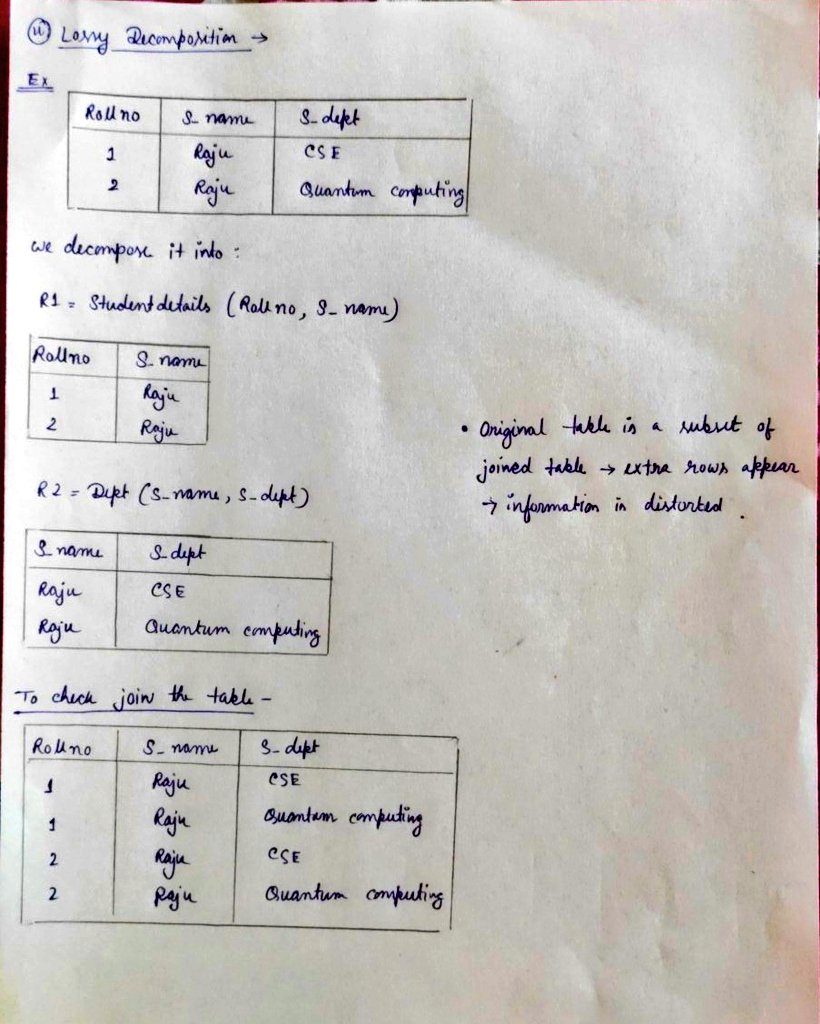 (ii) Lossy Decomposition →
Ex
Rollno S_name S_dept
1 Raju CSE
2 Raju Quantum computing
we decompose it into :
R1 = Student details (Rollno, S_name)
Rollno S_name
1 Raju
2 Raju
• Original table is a subset of
joined table → extra rows appear
→ information is distorted .
R2 = Dept (S_name, S_dept)
S_name S_dept
Raju CSE
Raju Quantum computing
To check join the table -
Rollno S_name S_dept
1 Raju CSE
1 Raju Quantum computing
2 Raju CSE
2 Raju Quantum computing